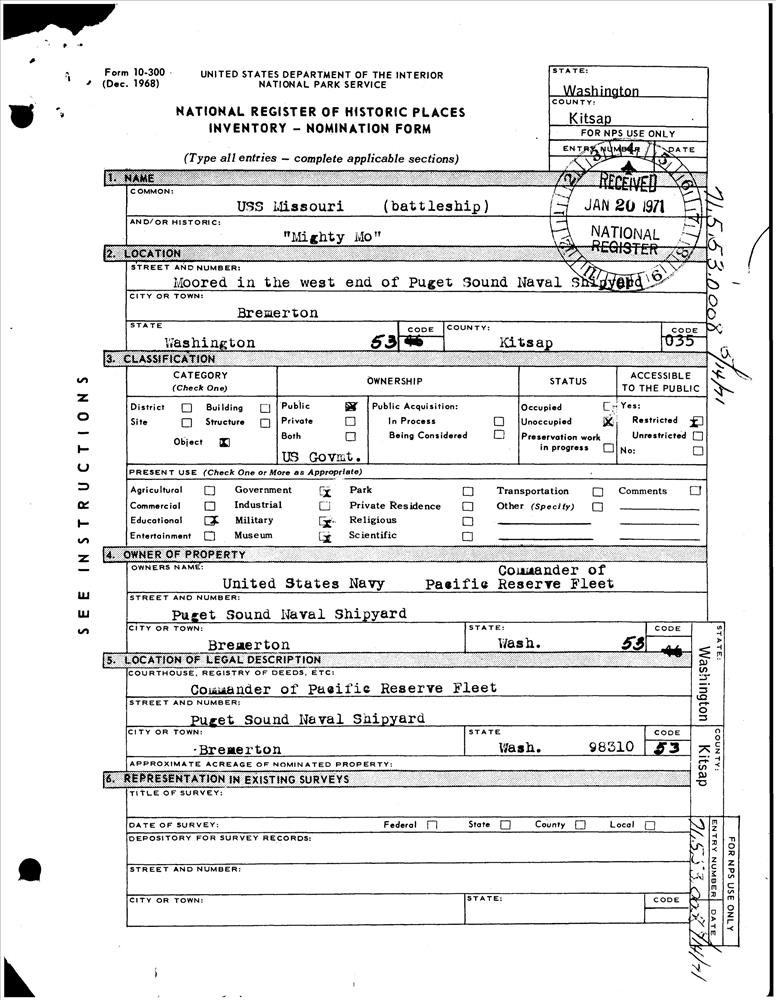 Form 10-300
(Dec. 1968)
UNITED STATES DEPARTMENT OF THE INTERIOR
NATIONAL PARK SERVICE
NATIONAL REGISTER OF HISTORIC PLACES
INVENTORY – NOMINATION FORM
(Type all entries – complete applicable sections)
STATE:
Washington
COUNTY:
Kitsap
FOR NPS USE ONLY
ENTRY NUMBER DATE
RECEIVED
JAN 20 1971
NATIONAL
REGISTER
1. NAME
COMMON:
USS Missouri (battleship)
AND/OR HISTORIC:
"Mighty Mo"
2. LOCATION
STREET AND NUMBER:
Moored in the west end of Puget Sound Naval Shipyard
CITY OR TOWN:
Bremerton
STATE CODE COUNTY: CODE
Washington 53 46 Kitsap 035
3. CLASSIFICATION
CATEGORY
(Check One)
OWNERSHIP
STATUS
ACCESSIBLE
TO THE PUBLIC
District Building
Site Structure
Object X
Public X
Private
Both
US Govmt.
Public Acquisition:
In Process
Being Considered
Occupied
Unoccupied X
Preservation work
in progress
Yes:
Restricted X
Unrestricted
No:
PRESENT USE (Check One or More as Appropriate)
Agricultural Government X Park Transportation Comments
Commercial Industrial Private Residence Other (Specify)
Educational X Military X Religious
Entertainment Museum X Scientific
4. OWNER OF PROPERTY
OWNERS NAME:
Commander of
United States Navy Pacific Reserve Fleet
STREET AND NUMBER:
Puget Sound Naval Shipyard
CITY OR TOWN: STATE: CODE
Bremerton Wash. 53 46
5. LOCATION OF LEGAL DESCRIPTION
COURTHOUSE, REGISTRY OF DEEDS, ETC:
Commander of Pacific Reserve Fleet
STREET AND NUMBER:
Puget Sound Naval Shipyard
CITY OR TOWN: STATE CODE
Bremerton Wash. 98310 53
APPROXIMATE ACREAGE OF NOMINATED PROPERTY:
6. REPRESENTATION IN EXISTING SURVEYS
TITLE OF SURVEY:
DATE OF SURVEY: Federal State County Local
DEPOSITORY FOR SURVEY RECORDS:
STREET AND NUMBER:
CITY OR TOWN: STATE: CODE
SEE INSTRUCTIONS
71.5.53.0008 5/14/71
STATE:
Washington
COUNTY:
Kitsap
ENTRY NUMBER DATE
FOR NPS USE ONLY